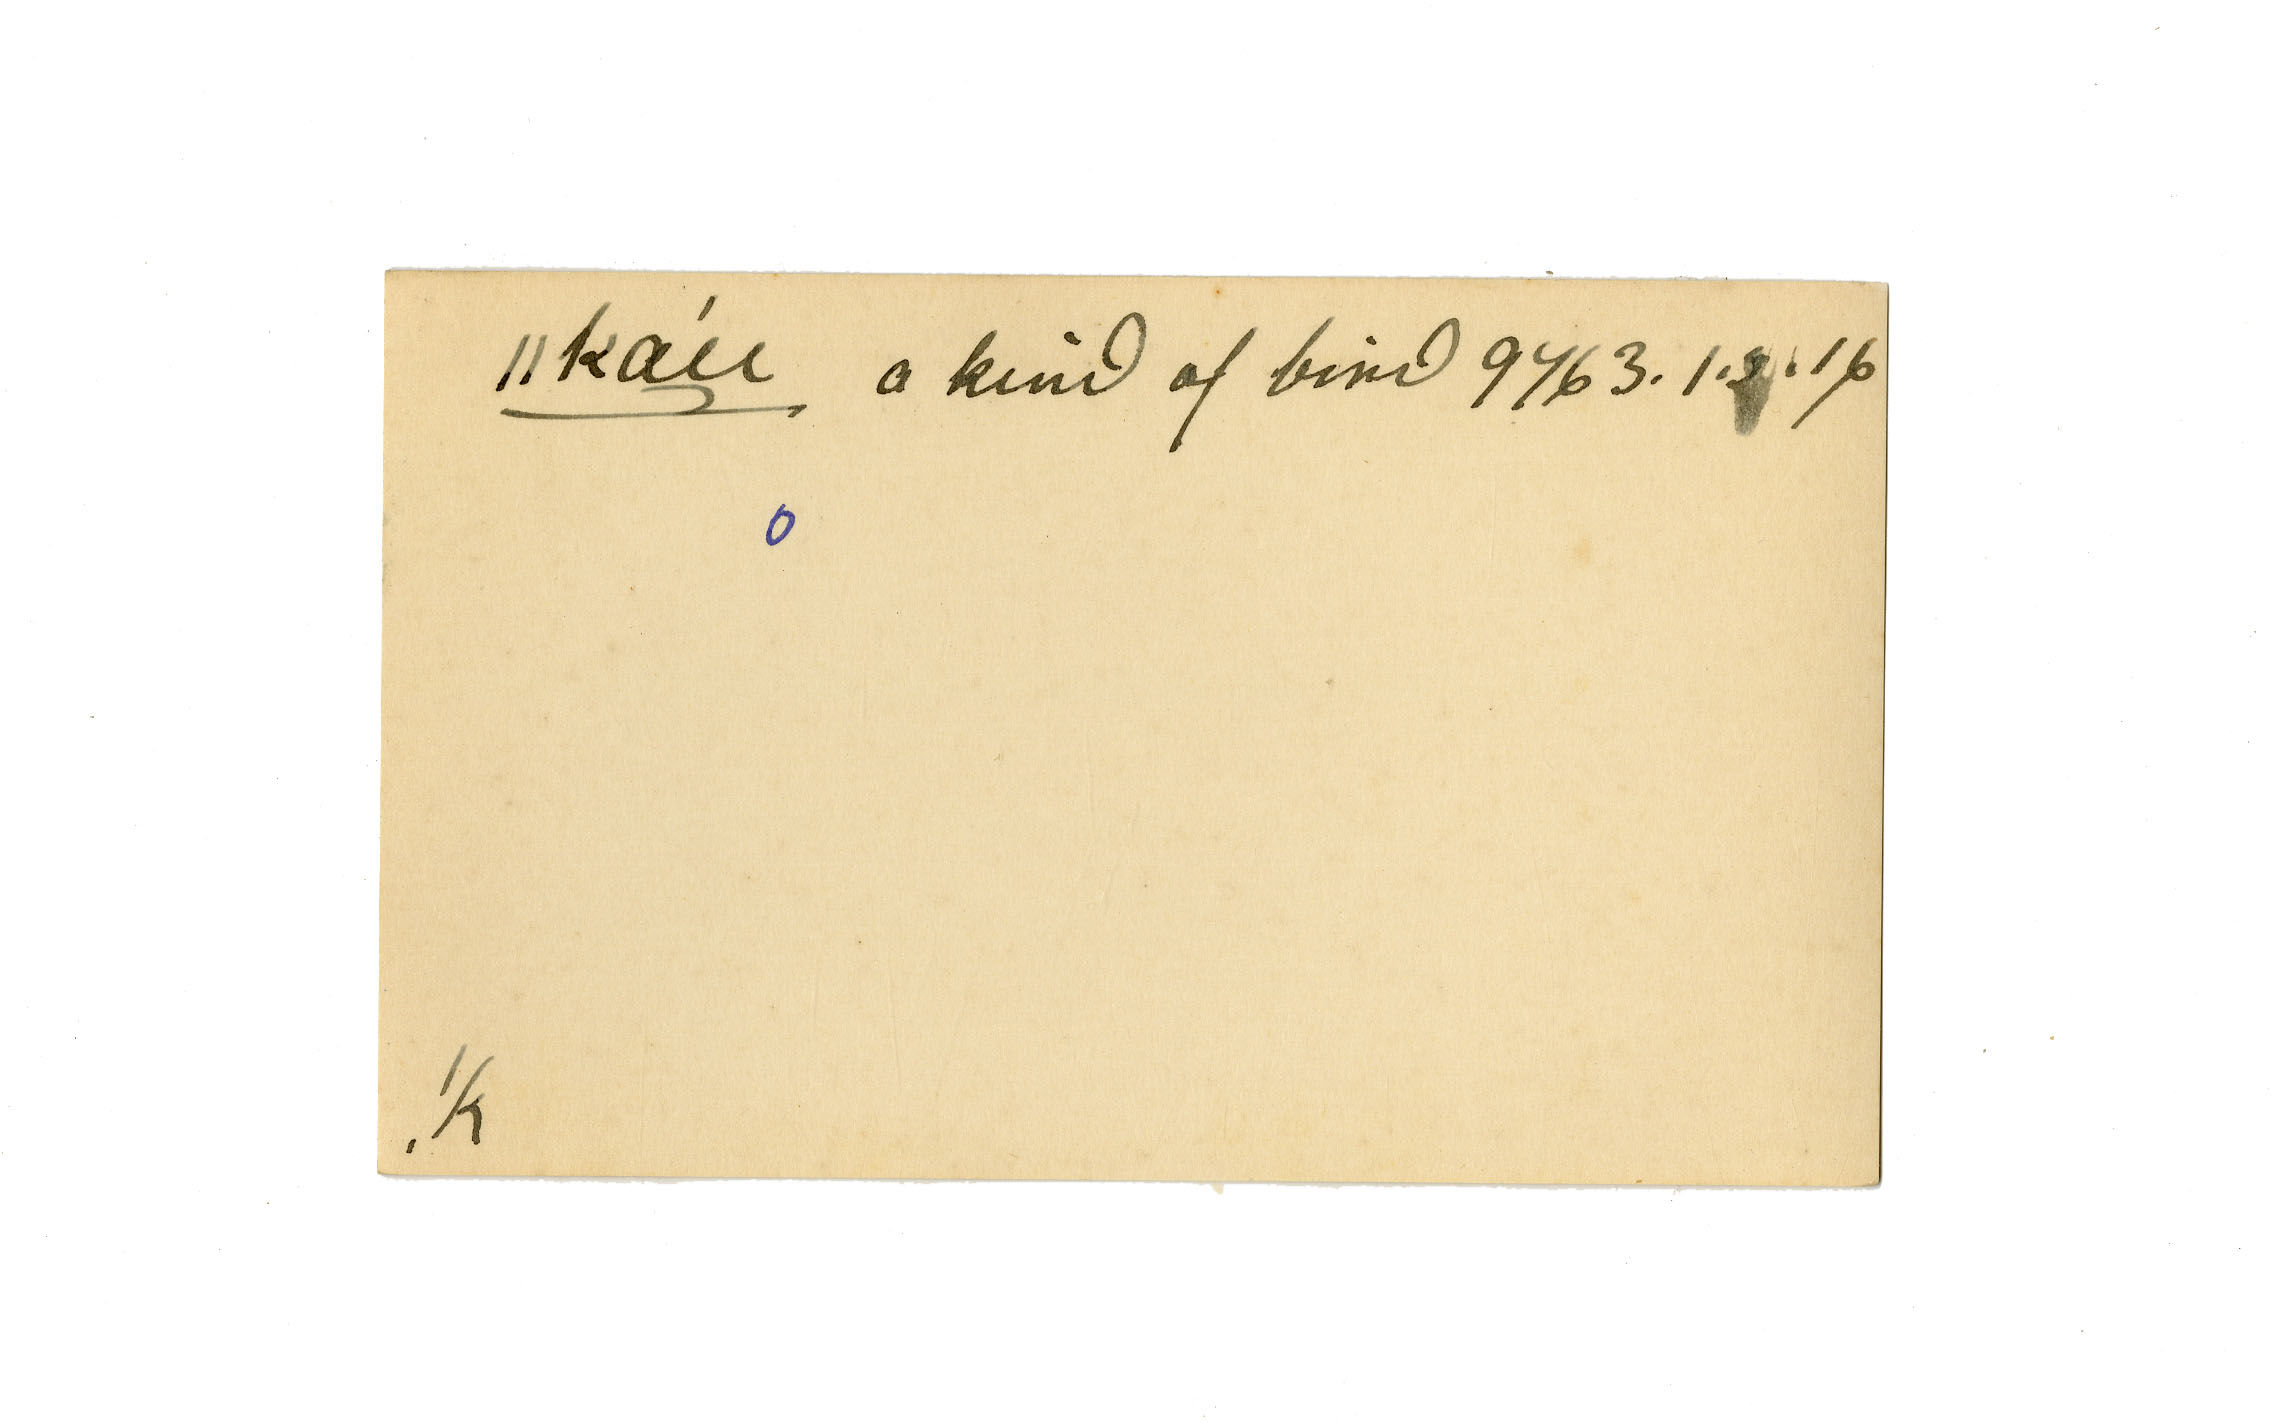 ǁkáu a kind of bird 9463. 1.2.16
o
!k